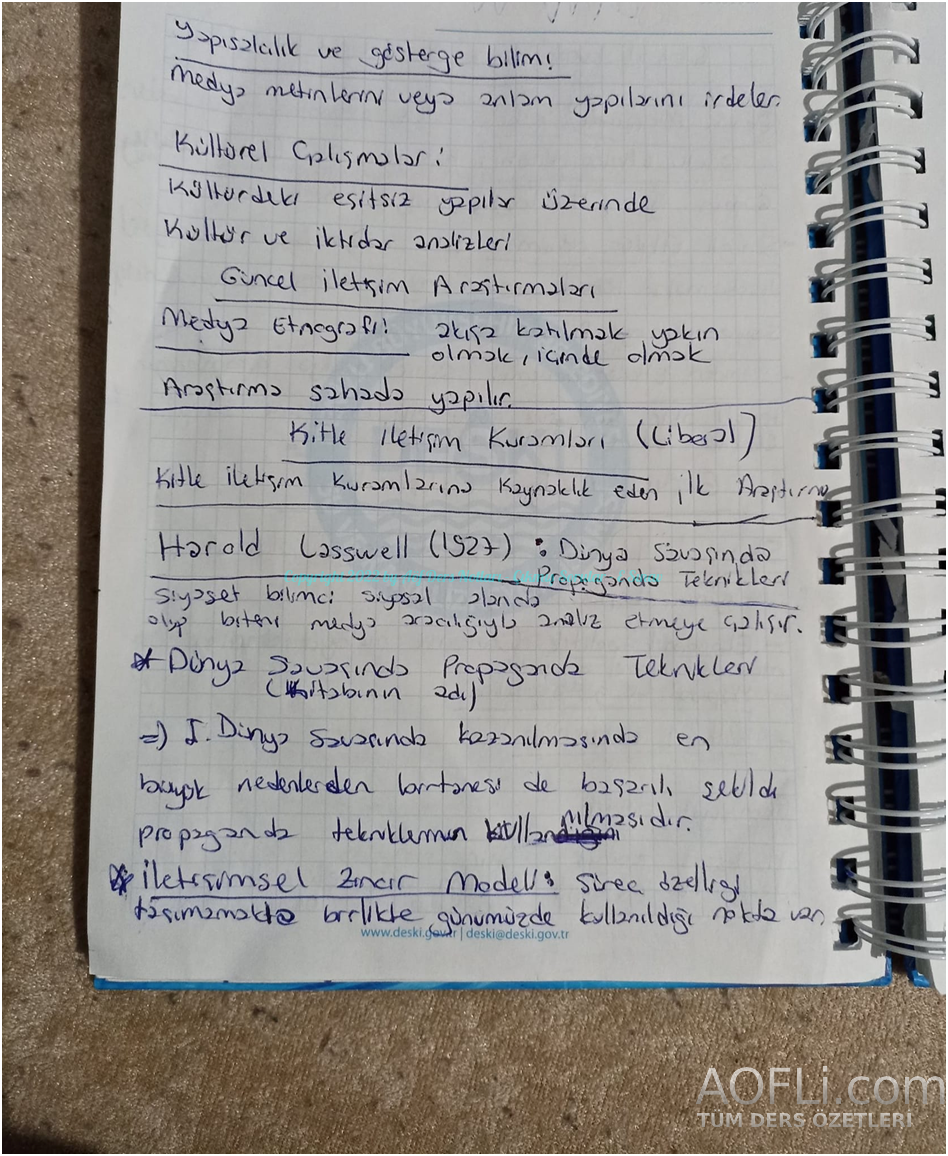 Yapısalcılık ve gösterge bilim!
Medya metinlerini veya anlam yapılarını irdeler.
Kültürel Çalışmalar:
Kültürdeki eşitsiz yapılar üzerinde
Kültür ve iktidar analizleri
Güncel iletişim Araştırmaları
Medya Etnografi! akışa katılmak yakın
olmak, içinde olmak
Araştırma sahada yapılır.
Kitle iletişim Kuramları (Liberal)
Kitle iletişim Kuramlarına Kaynaklık eden ilk Araştırma
Harold Lasswell (1927) : Dünya Savaşında
Propaganda Teknikleri
siyaset bilimci siyasal alanda
olup biteni medya aracılığıyla analiz etmeye çalışır.
* Dünya Savaşında Propaganda Teknikleri
(Kitabının adı)
=) I. Dünya Savaşında kazanılmasında en
büyük nedenlerden birtanesi de başarılı şekilde
propaganda tekniklerinin kullanılmasıdır.
* İletişimsel Zincir Modeli: Süreç özelliği
taşımamakta birlikte günümüzde kullanıldığı nokta var.
www.deski.gov.tr | deski@deski.gov.tr
AOFLi.com
TÜM DERS ÖZETLERİ